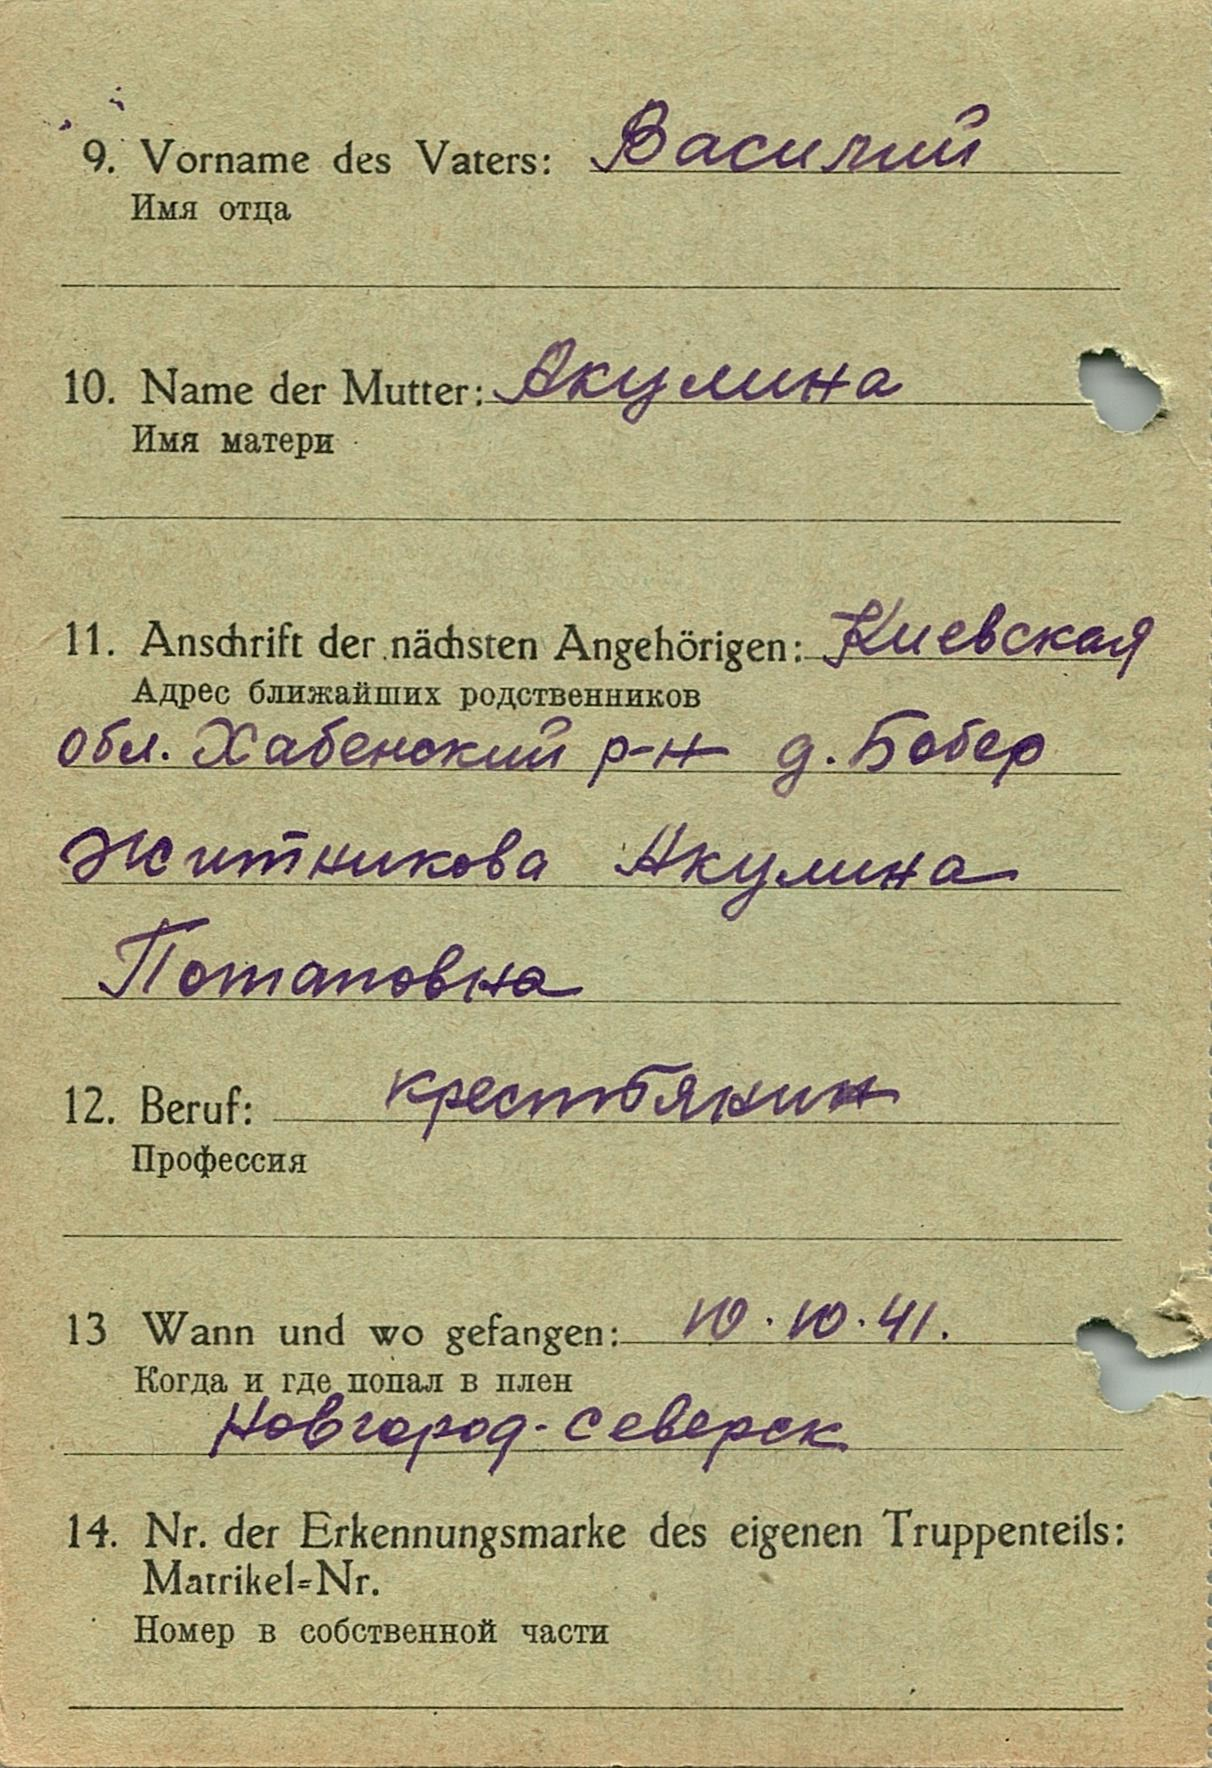 9. Vorname des Vaters: Василий
Имя отца
10. Name der Mutter: Акулина
Имя матери
11. Anschrift der nächsten Angehörigen: Киевская
Адрес ближайших родственников
обл. Хабенский р-н д. Бобер
Житникова Акулина
Потаповна
12. Beruf: крестьянин
Профессия
13 Wann und wo gefangen: 10.10.41.
Когда и где попал в плен
Новгород-северск
14. Nr. der Erkennungsmarke des eigenen Truppenteils:
Matrikel=Nr.
Номер в собственной части